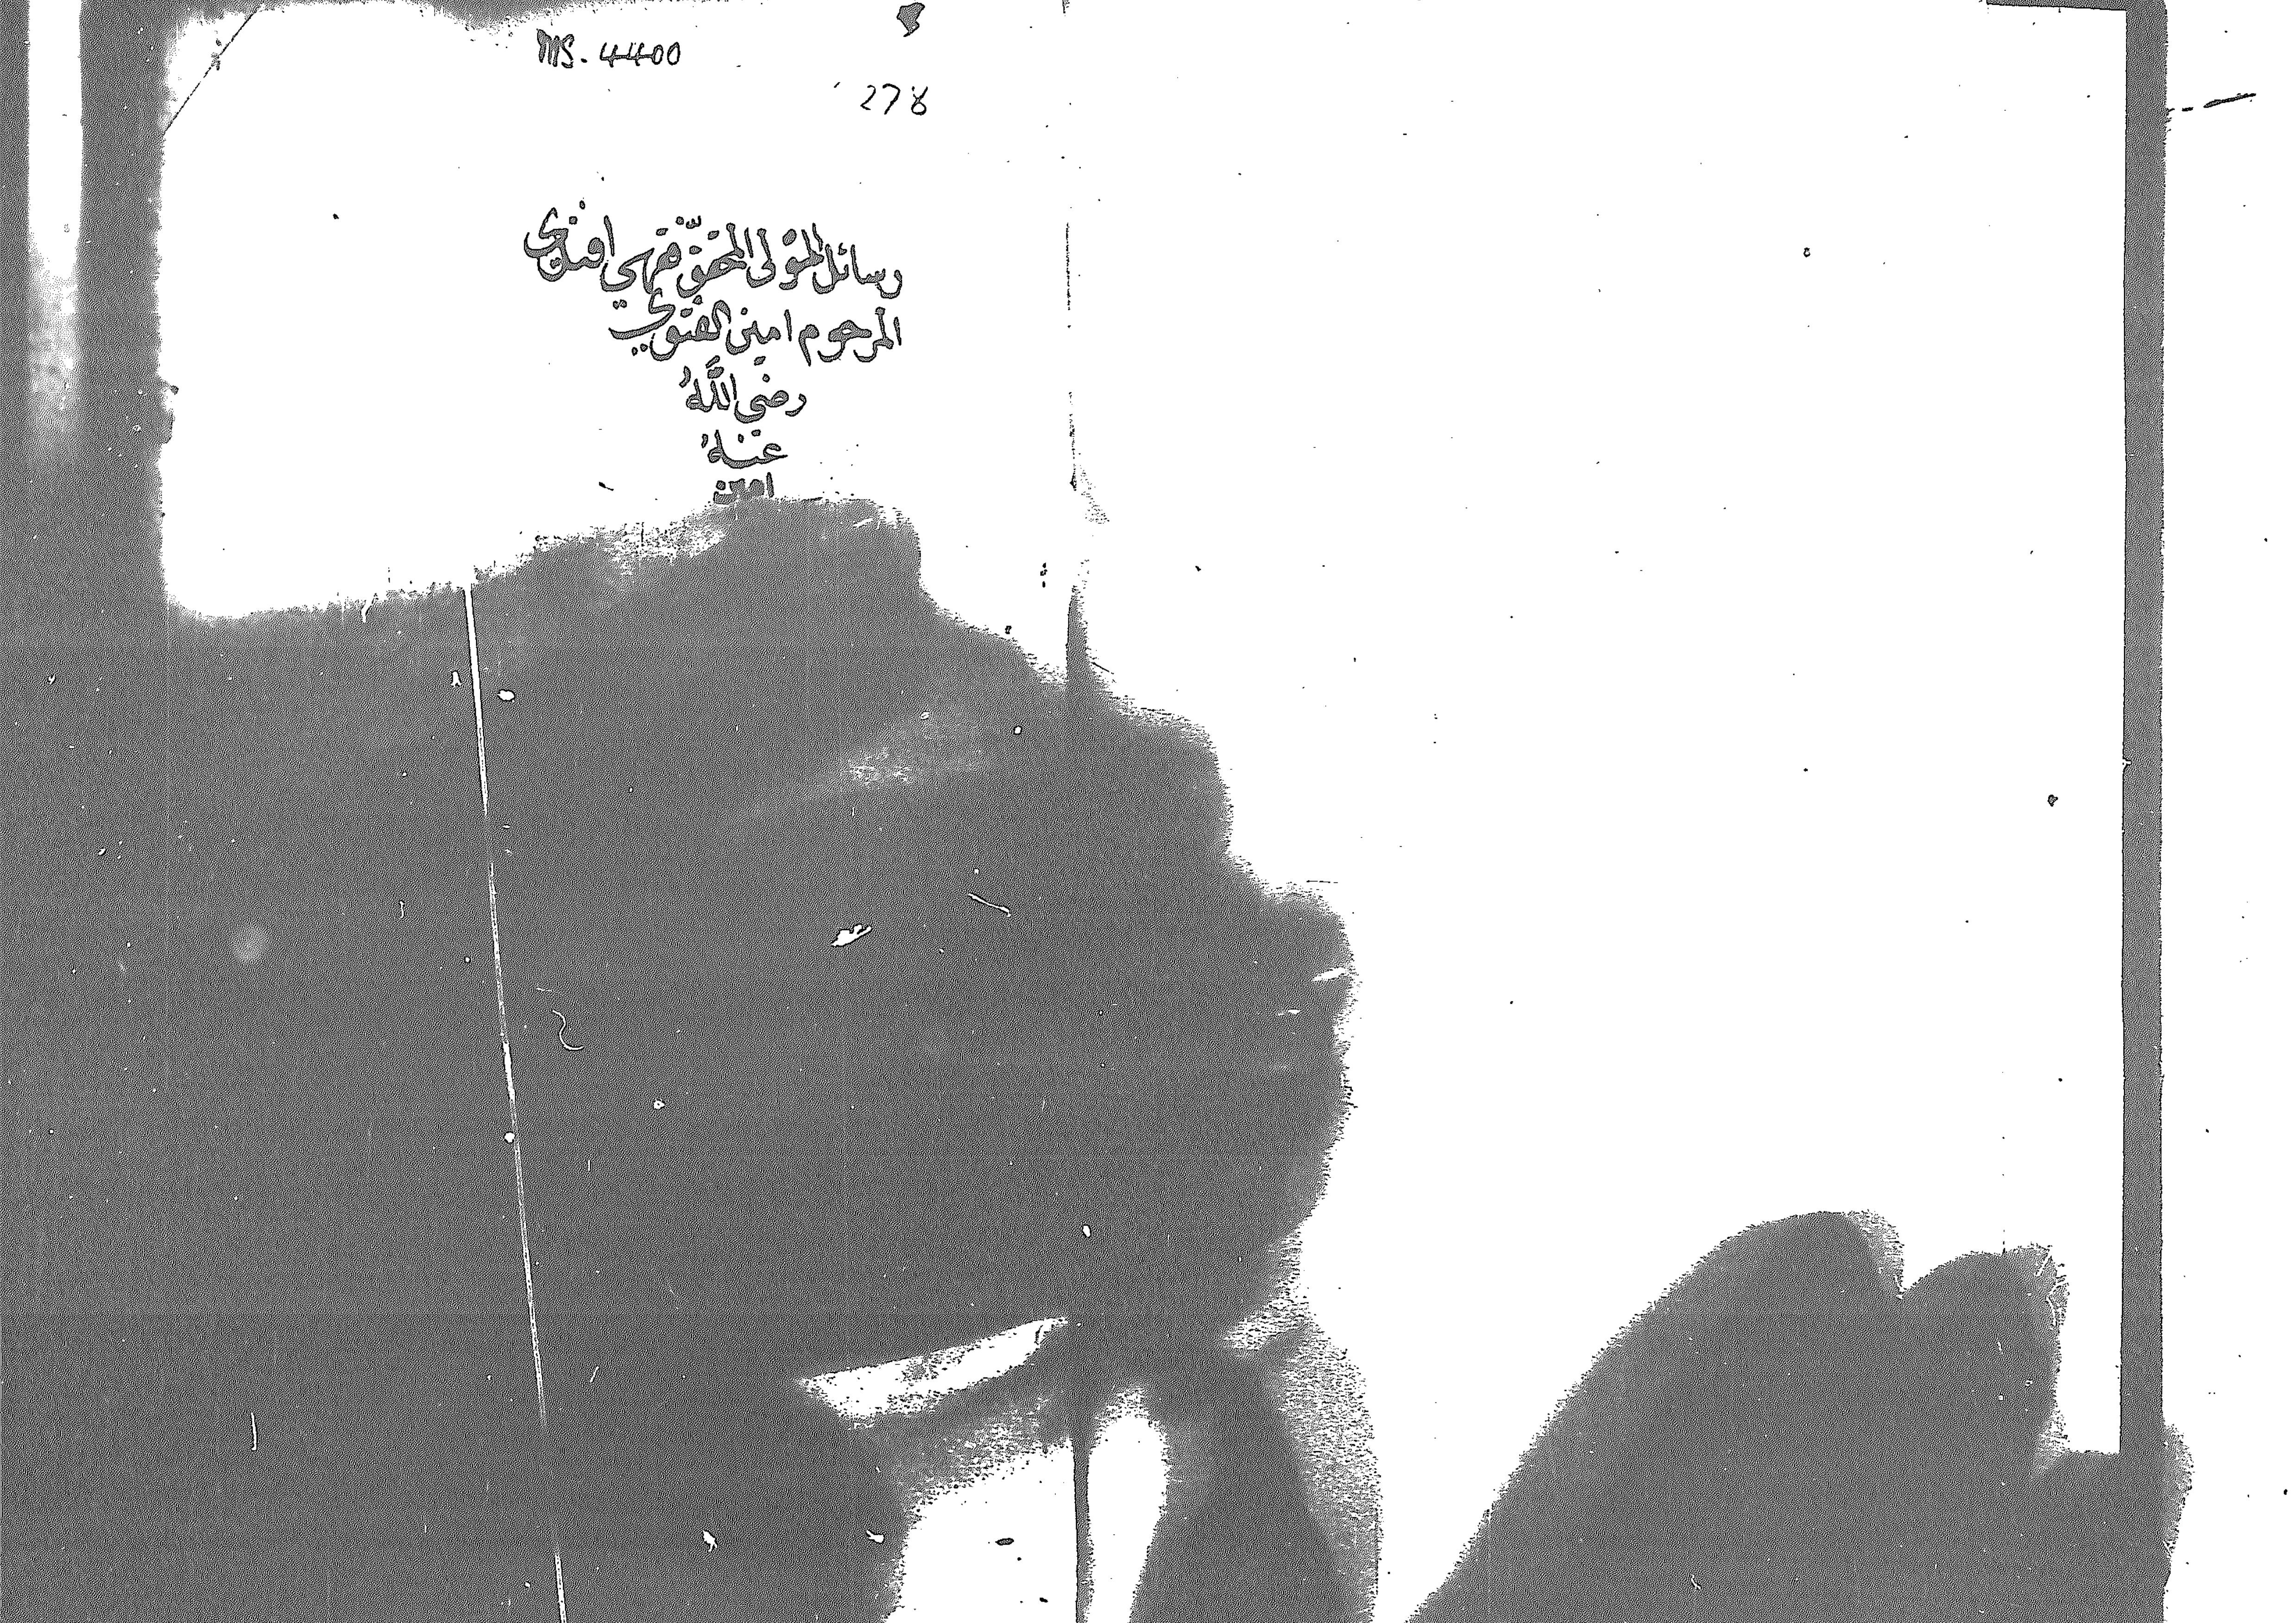 MS. 4400
278
رسائل المولى المحقق فقهي افندي
المرحوم امين الفتوي
رضي اللّٰه
عنهُ
امين